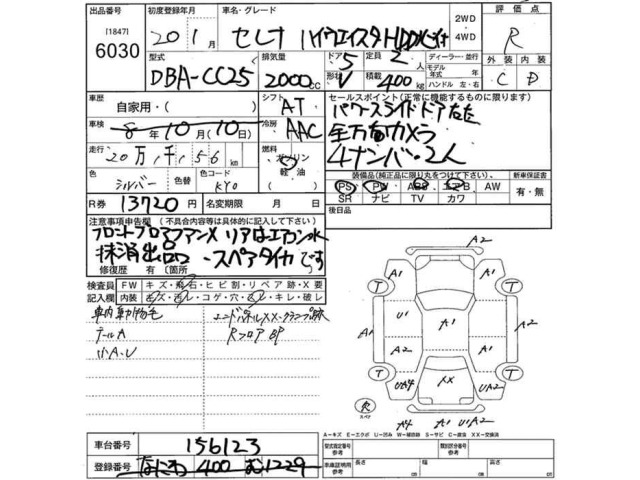 出品番号 初度登録年月 車名・グレード 2WD・4WD 評価点
[1847]
6030 20 1月 セレナ ハイウェイスターHDDナビ付 R
型式 排気量 ドア 5 定員 2人 ディーラー・並行 外装 内装
DBA-CC25 2000cc 形状 V 積載 400kg モデル年式 年 ハンドル 左・右 C D
車歴 自家用・( ) シフト AT セールスポイント(正常に機能するものに限ります)
車検 8年10月(10日) 冷房 AAC パワースライドドア左右
走行 20万 千156km 燃料 ガソリン 軽油 全方向カメラ
4ナンバー・2人
色 シルバー 色替 色コード KY0 装備品(純正品に限り丸をつけて下さい。) 新車保証書
PS PW ABS エアB AW 有・無
R券 13720円 名変期限 月 日 SR ナビ TV カワ
注意事項申告欄 (不具合内容等は具体的に記入して下さい) 後日品
フロントフロアファンX リアはエアコン水
抹消出品 スペアタイヤです
修復歴 有 箇所
検査員 FW キズ・飛石・ヒビ割・リペア跡・X要
記入欄 内装 キレ・破レ
車内動物毛
テールA RフロアBP
小A.U
A2
A1 A1
T T
U1
A1 A1
A2 A2
T T
UA4 XX UA2
欠
スペア
A4 A1 U1A2
A-キズ E-エクボ U-凹み W-補修跡 S-サビ C-腐蝕 XX-交換済
車台番号 156123 型式指定番号 参考 類別区分番号 参考
登録番号 なにわ 400 む1229 車庫証明用 参考 長さ 幅 高さ